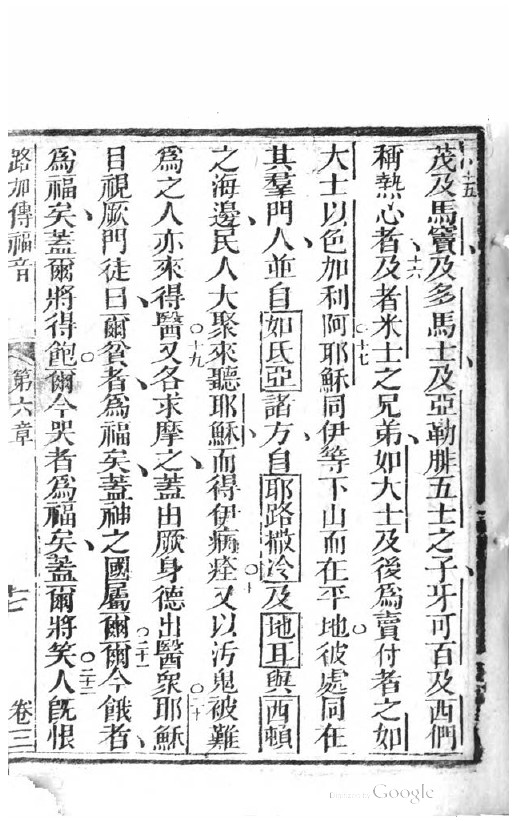 十五
茂及馬竇及多馬士及亞勒腓五士之子牙可百及西們
稱熱心者十六及者米士之兄弟如大士及後為賣付者之如
大士以色加利阿十七耶穌同伊等下山而在平地彼處同在
其羣門人並自如氏亞諸方自耶路撒冷及地耳與西頓
之海邊民人大聚來聽耶穌而得伊病痊十八又以污鬼被難
為之人亦來得醫十九又各求摩之蓋由厥身德出醫眾二十耶穌
目視厥門徒曰爾貧者為福矣蓋神之國屬爾二十一爾今餓者
為福矣蓋爾將得飽爾今哭者為福矣蓋爾將笑二十二人既恨
路加傳福音 第六章 十七 卷三
Google